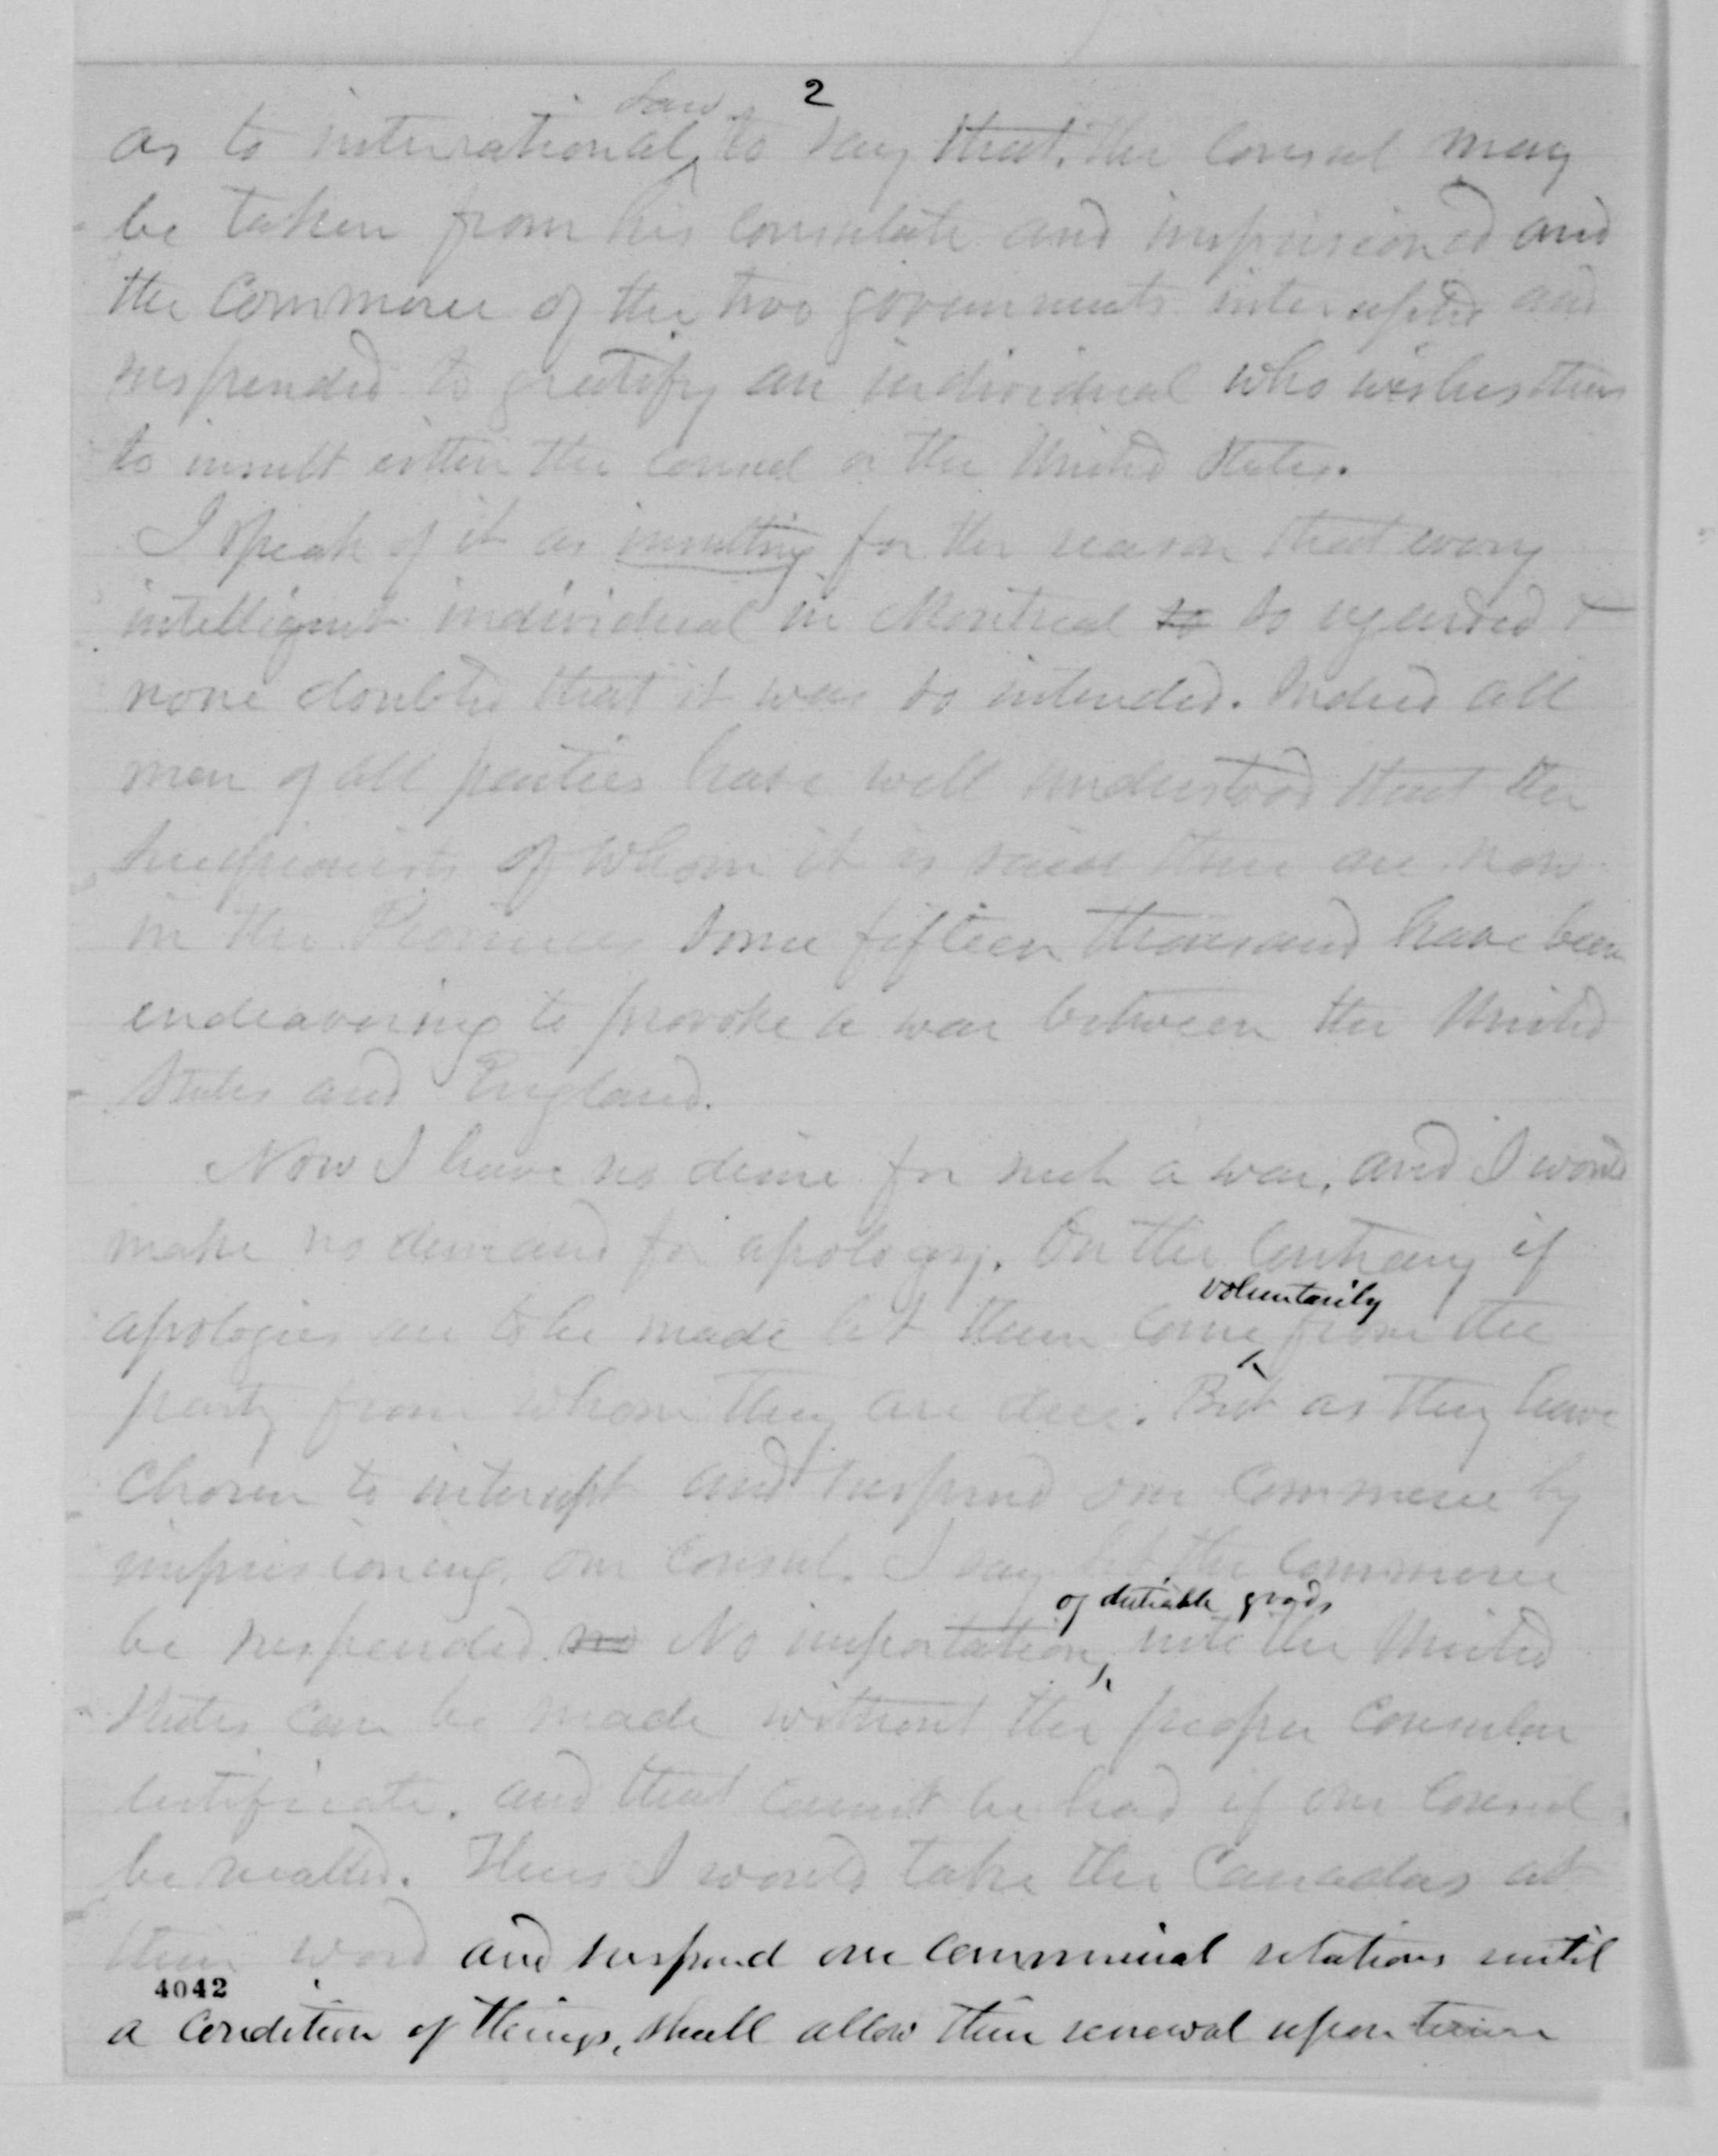 2
as to international law to say that the Consul may
be taken from his consulate and imprisioned and
the Commerce of the two governments interupted and
suspended to gratify an individual who wishes thus
to insult either the consul or the United States.
I speak of it as insulting for the reason that every
intelligent individual in Montreal so so regarded &
none doubted that it was so intended. Indeed all
men of all parties have well understood that the
of whom it is said there are now
in the Provinces some fifteen thousand have been
endeavoring to provoke a war between the United
States and England.
Now I have no desire for such a war, and I would
make no demand for apology. On the Contrary if
apologies are to be made let them come voluntarily from the
party from whom they are due. But as they have
chosen to interupt and suspend our Commerce by
imprisioning our Consul. I say let the Commerce
be suspended. no No importation of dutiable goods into the United
States can be made without the proper Consular
Certificate, and that cannot be had if our Consul
be recalled. Thus I would take the Canadas at
their word and suspend our commercial relations until
4042
a Condition of things, shall allow their renewal upon terms